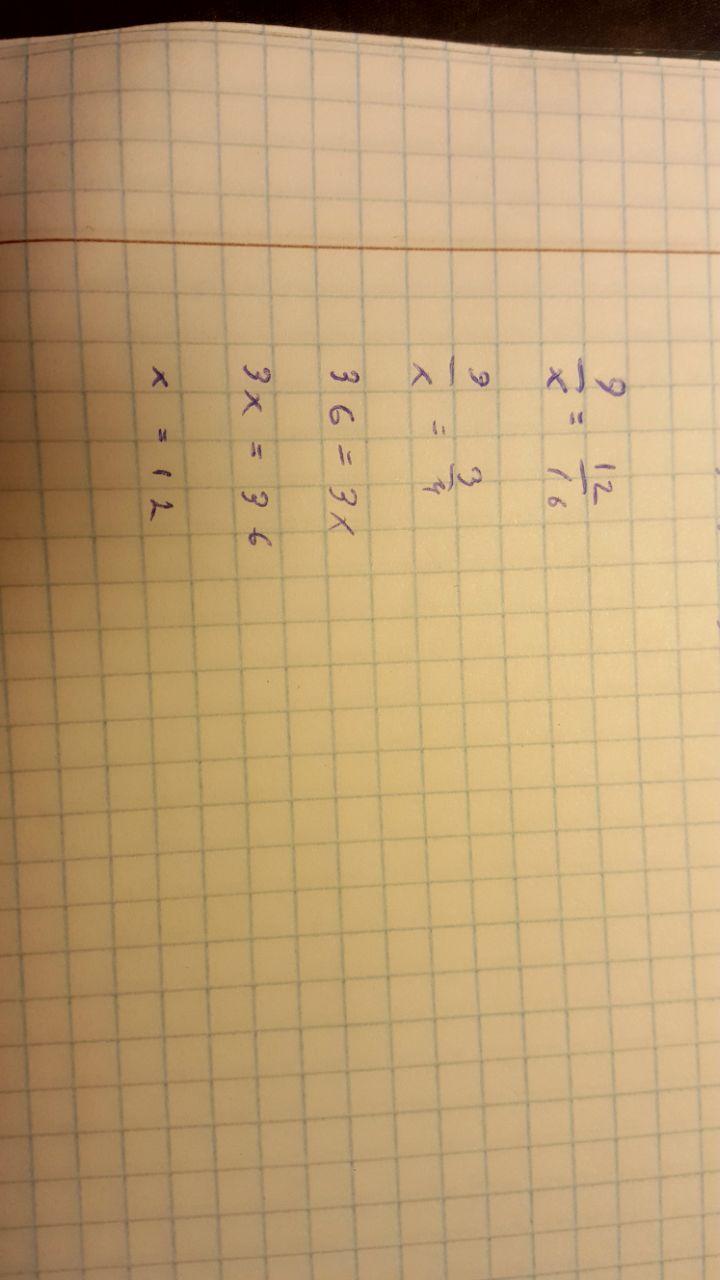 9/x = 12/16
9/x = 3/4
36 = 3x
3x = 36
x = 12